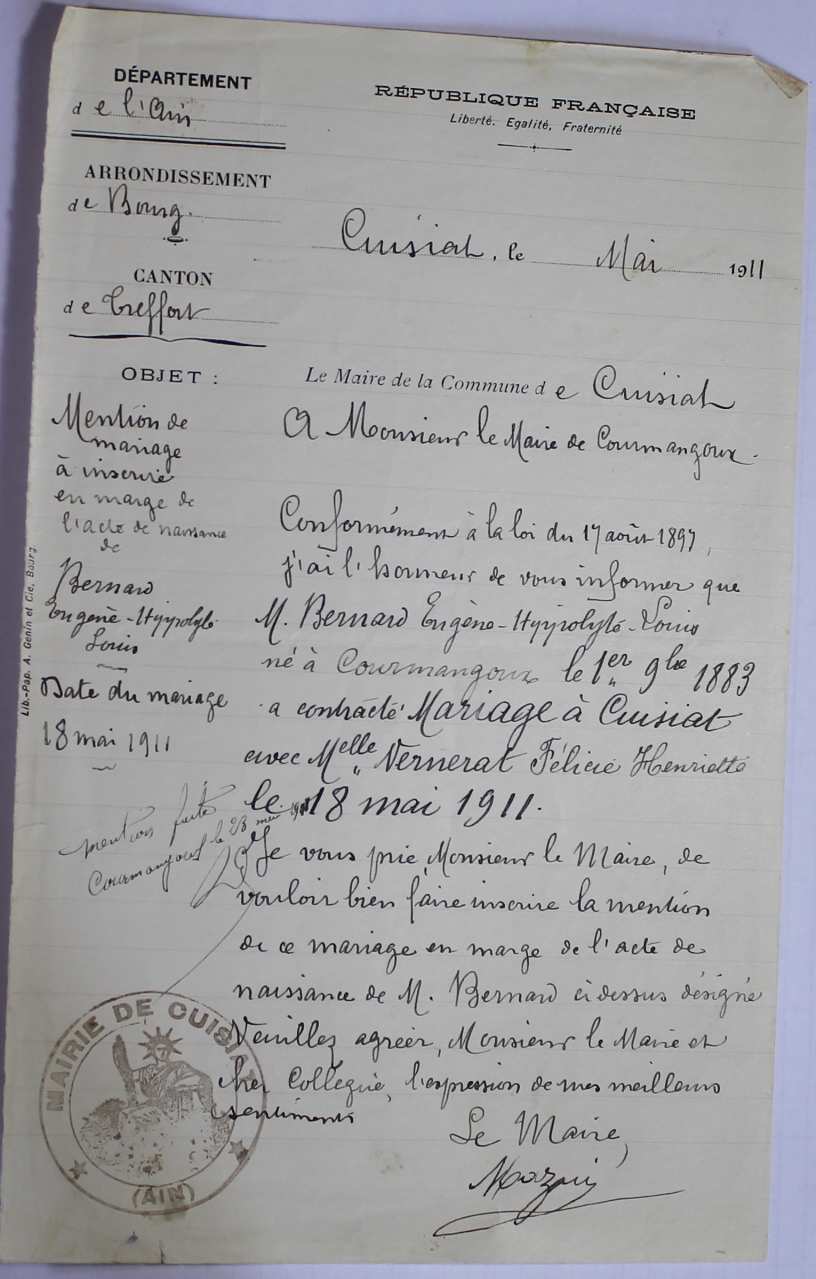 DÉPARTEMENT
de l'Ain
RÉPUBLIQUE FRANÇAISE
Liberté, Egalité, Fraternité
ARRONDISSEMENT
de Bourg.
CANTON
de Treffort
Cuisiat, le Mai 1911
OBJET :
Mention de
mariage
à inscrire
en marge de
l'acte de naissance
de
Bernard
Eugène-Hyppolyte
Louis
Date du mariage
18 mai 1911
mention faite
Courmangoux le 23 mai 1911
Lib.-Pap. A. Genin et Cie, Bourg
Le Maire de la Commune de Cuisiat
A Monsieur le Maire de Courmangoux.
Conformément à la loi du 17 août 1897,
j'ai l'honneur de vous informer que
M. Bernard Eugène-Hyppolyte-Louis
né à Courmangoux le 1er 9bre 1883
a contracté Mariage à Cuisiat
avec Melle Vernerat Félicie Henriette
le 18 mai 1911.
Je vous prie, Monsieur le Maire, de
vouloir bien faire inscrire la mention
de ce mariage en marge de l'acte de
naissance de M. Bernard ci dessus désigné
Veuillez agréer, Monsieur le Maire et
cher Collègue, l'expression de mes meilleurs
sentiments
Le Maire,
MAIRIE DE CUISIAT
(AIN)